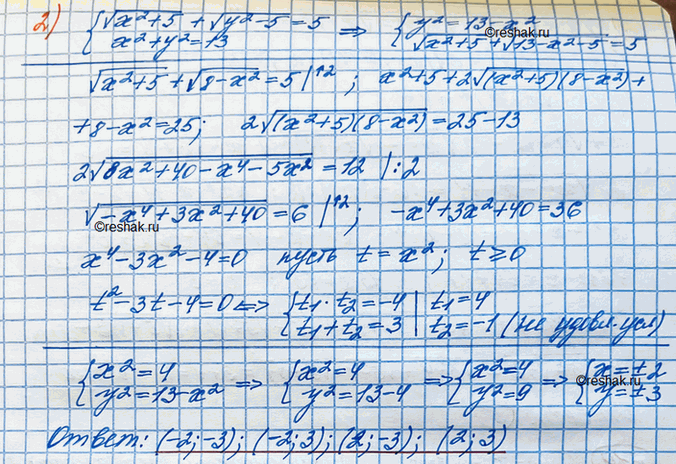 2) { √x²+5 + √y²-5 = 5 ⇒ { y² = 13 - x²
x² + y² = 13 √x²+5 + √13-x²-5 = 5
©reshak.ru
√x²+5 + √8-x² = 5 |^2 ; x²+5+2√(x²+5)(8-x²) +
+8-x²=25; 2√(x²+5)(8-x²) = 25-13
2√8x²+40-x⁴-5x² = 12 |:2
√-x⁴+3x²+40 = 6 |^2 ; -x⁴+3x²+40=36
©reshak.ru
x⁴-3x²-4=0 пусть t = x²; t ≥ 0
t²-3t-4=0 ⇔ { t₁·t₂=-4 | t₁=4
t₁+t₂=3 | t₂=-1 (не удовл. усл)
{ x²=4 ⇒ { x²=4 ⇒ { x²=4 ⇒ { x=±2
y²=13-x² y²=13-4 y²=9 y=±3
©reshak.ru
Ответ: (-2;-3); (-2;3); (2;-3); (2;3)